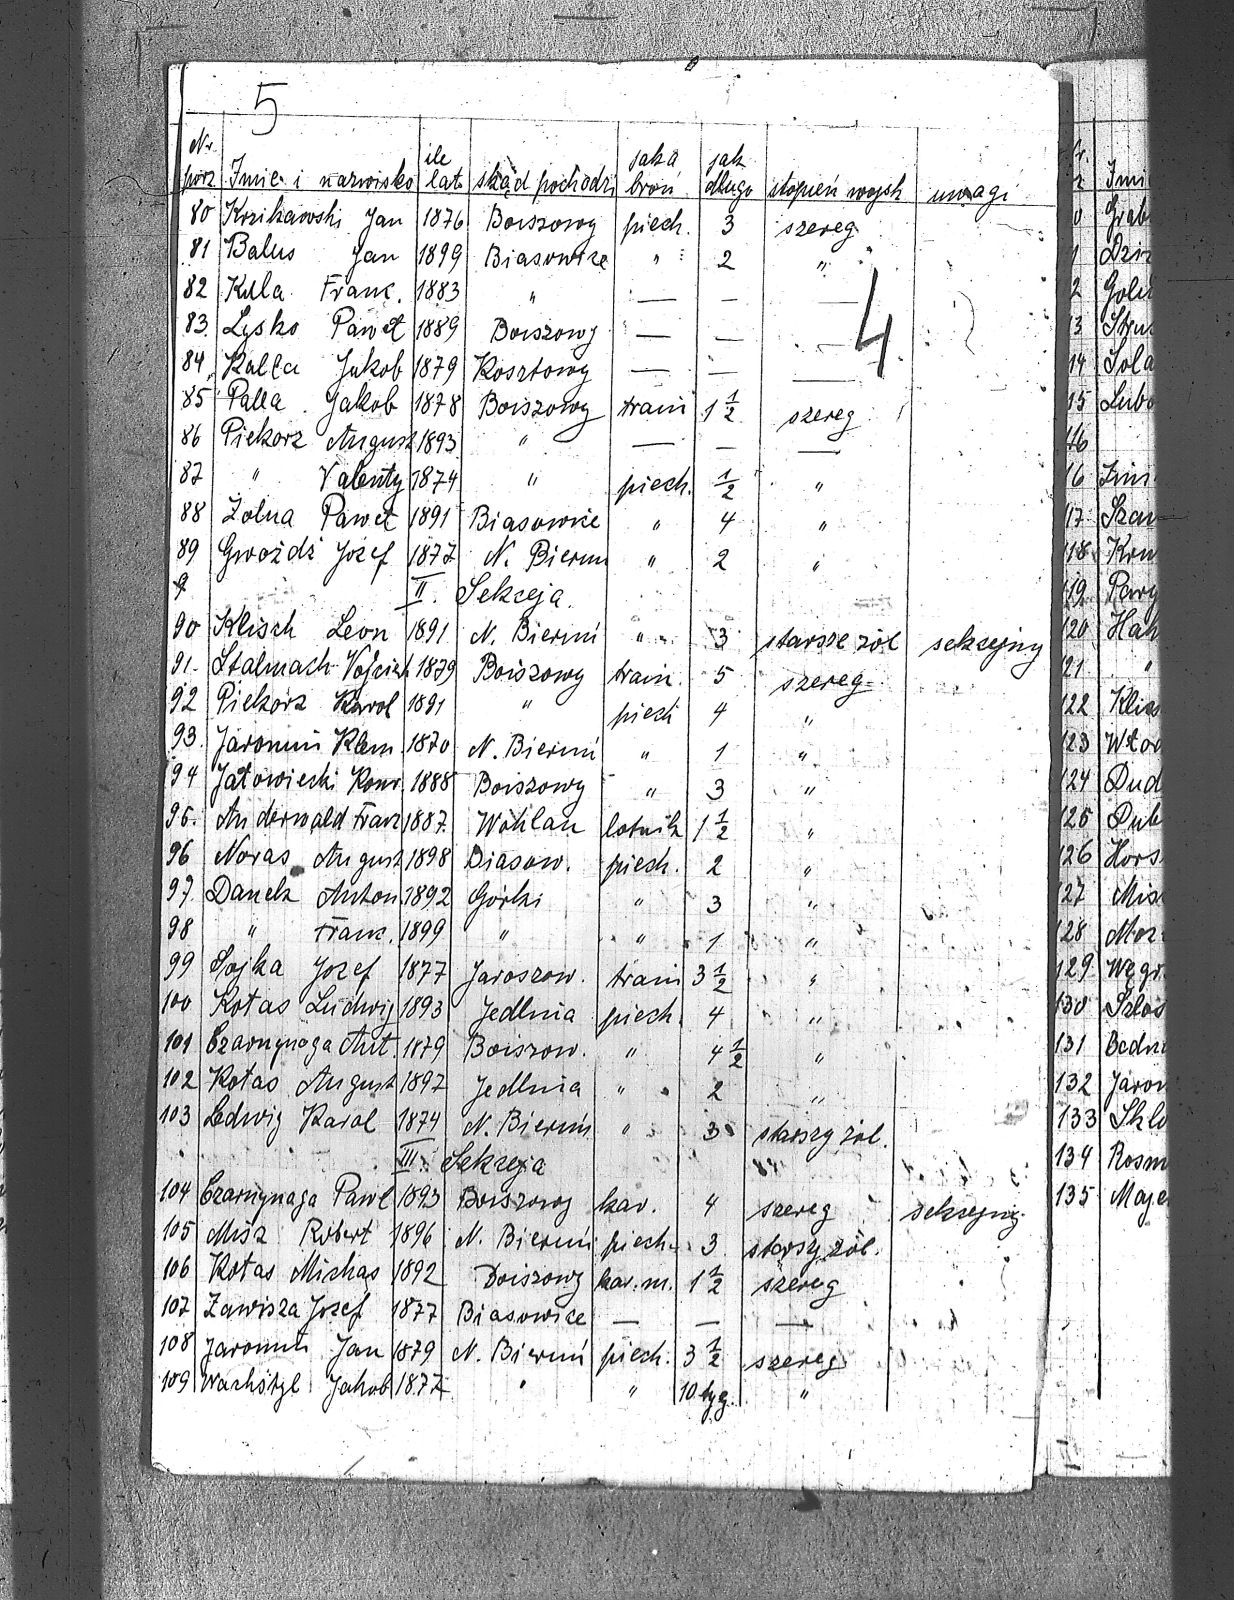 5
Nr. porz Imie i nazwisko ile lat skąd pochodzi jaka broń jak długo stopień wojsk uwagi
80 Kozikowski Jan 1876 Boiszowy piech. 3 szereg
81 Balus Jan 1899 Biasowice " 2 "
82 Kula Franc. 1883 " — — —
4
83. Lysko Paweł 1889 Boiszowy — — —
84. Kalla Jakob 1879 Kosztowy — — —
85 Palla Jakob 1878 Boiszowy train 1 1/2 szereg
86 Piekorz August 1893 " — — —
87 " Valenty 1874 " piech. 1/2 "
88 Żolna Paweł 1891 Biasowice " 4 "
89 Gwoźdź Jozef 1877 N. Bierun " 2 "
9 II. Sekceja.
90 Klisch Leon 1891 N. Bieruń " 3 starsze żoł sekcejny
91. Stalmach Vojciech 1879 Boiszowy train. 5 szereg
92 Piekorz Karol 1891 " piech 4 "
93. Jaromin Klem. 1870 N. Bieruń " 1 "
94 Jatowiecki Konr. 1888 Boiszowy " 3 "
95. Anderwald Franz 1887. Wohlau lotnik 1 1/2 "
96 Noras August 1898 Biasow. piech. 2 "
97. Danek Anton 1892 Górki " 3 "
98 " Franc. 1899 " " 1 "
99 Sojka Jozef 1877 Jaroszow. train 3 1/2 "
100 Kotas Ludwig 1893 Jedlnia piech. 4 "
101 Czarnynoga Ant. 1879 Boiszow. " 4 1/2 "
102 Kotas August 1897 Jedlnia " 2 "
103 Ledwig Karol 1874 N. Bieruń " 3 starszy żoł.
III. Sekceja
104 Czarnynaga Pawel 1893 Boiszowy kav. 4 szereg sekcejny
105 Misz Robert 1896 N. Bieruń piech. 3 starsy żoł.
106 Kotas Michas 1892 Boiszowy kav. m. 1 1/2 szereg
107 Zawisza Jozef 1877 Biasowice — — —
108 Jaromin Jan 1879 N. Bieruń piech. 3 1/2 szereg
109 Wachstyl Jakob 1877 " " 10 tyg. "